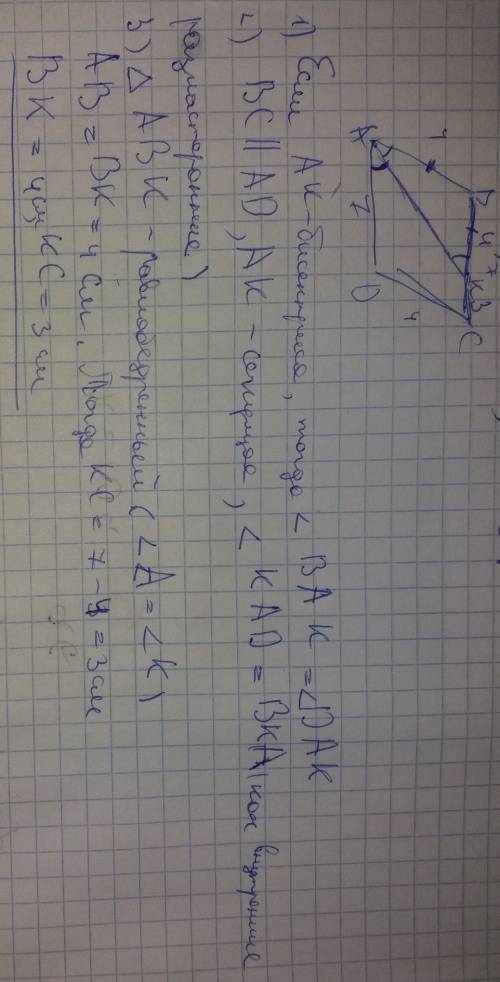 A
4
B
4
7
K
3
C
7
D
4
1) Если AK - биссектриса, тогда < BAK = <DAK
2) BC || AD, AK - секущая, < KAD = BKA (как внутренние
разносторонние)
3) △ ABK - равнобедренный ( <A = <K )
AB = BK = 4 см. Тогда KC = 7 - 4 = 3 см
BK = 4 см, KC = 3 см